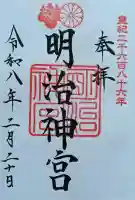 皇紀二千六百八十六年
奉拝
明治神宮
令和八年二月二十日